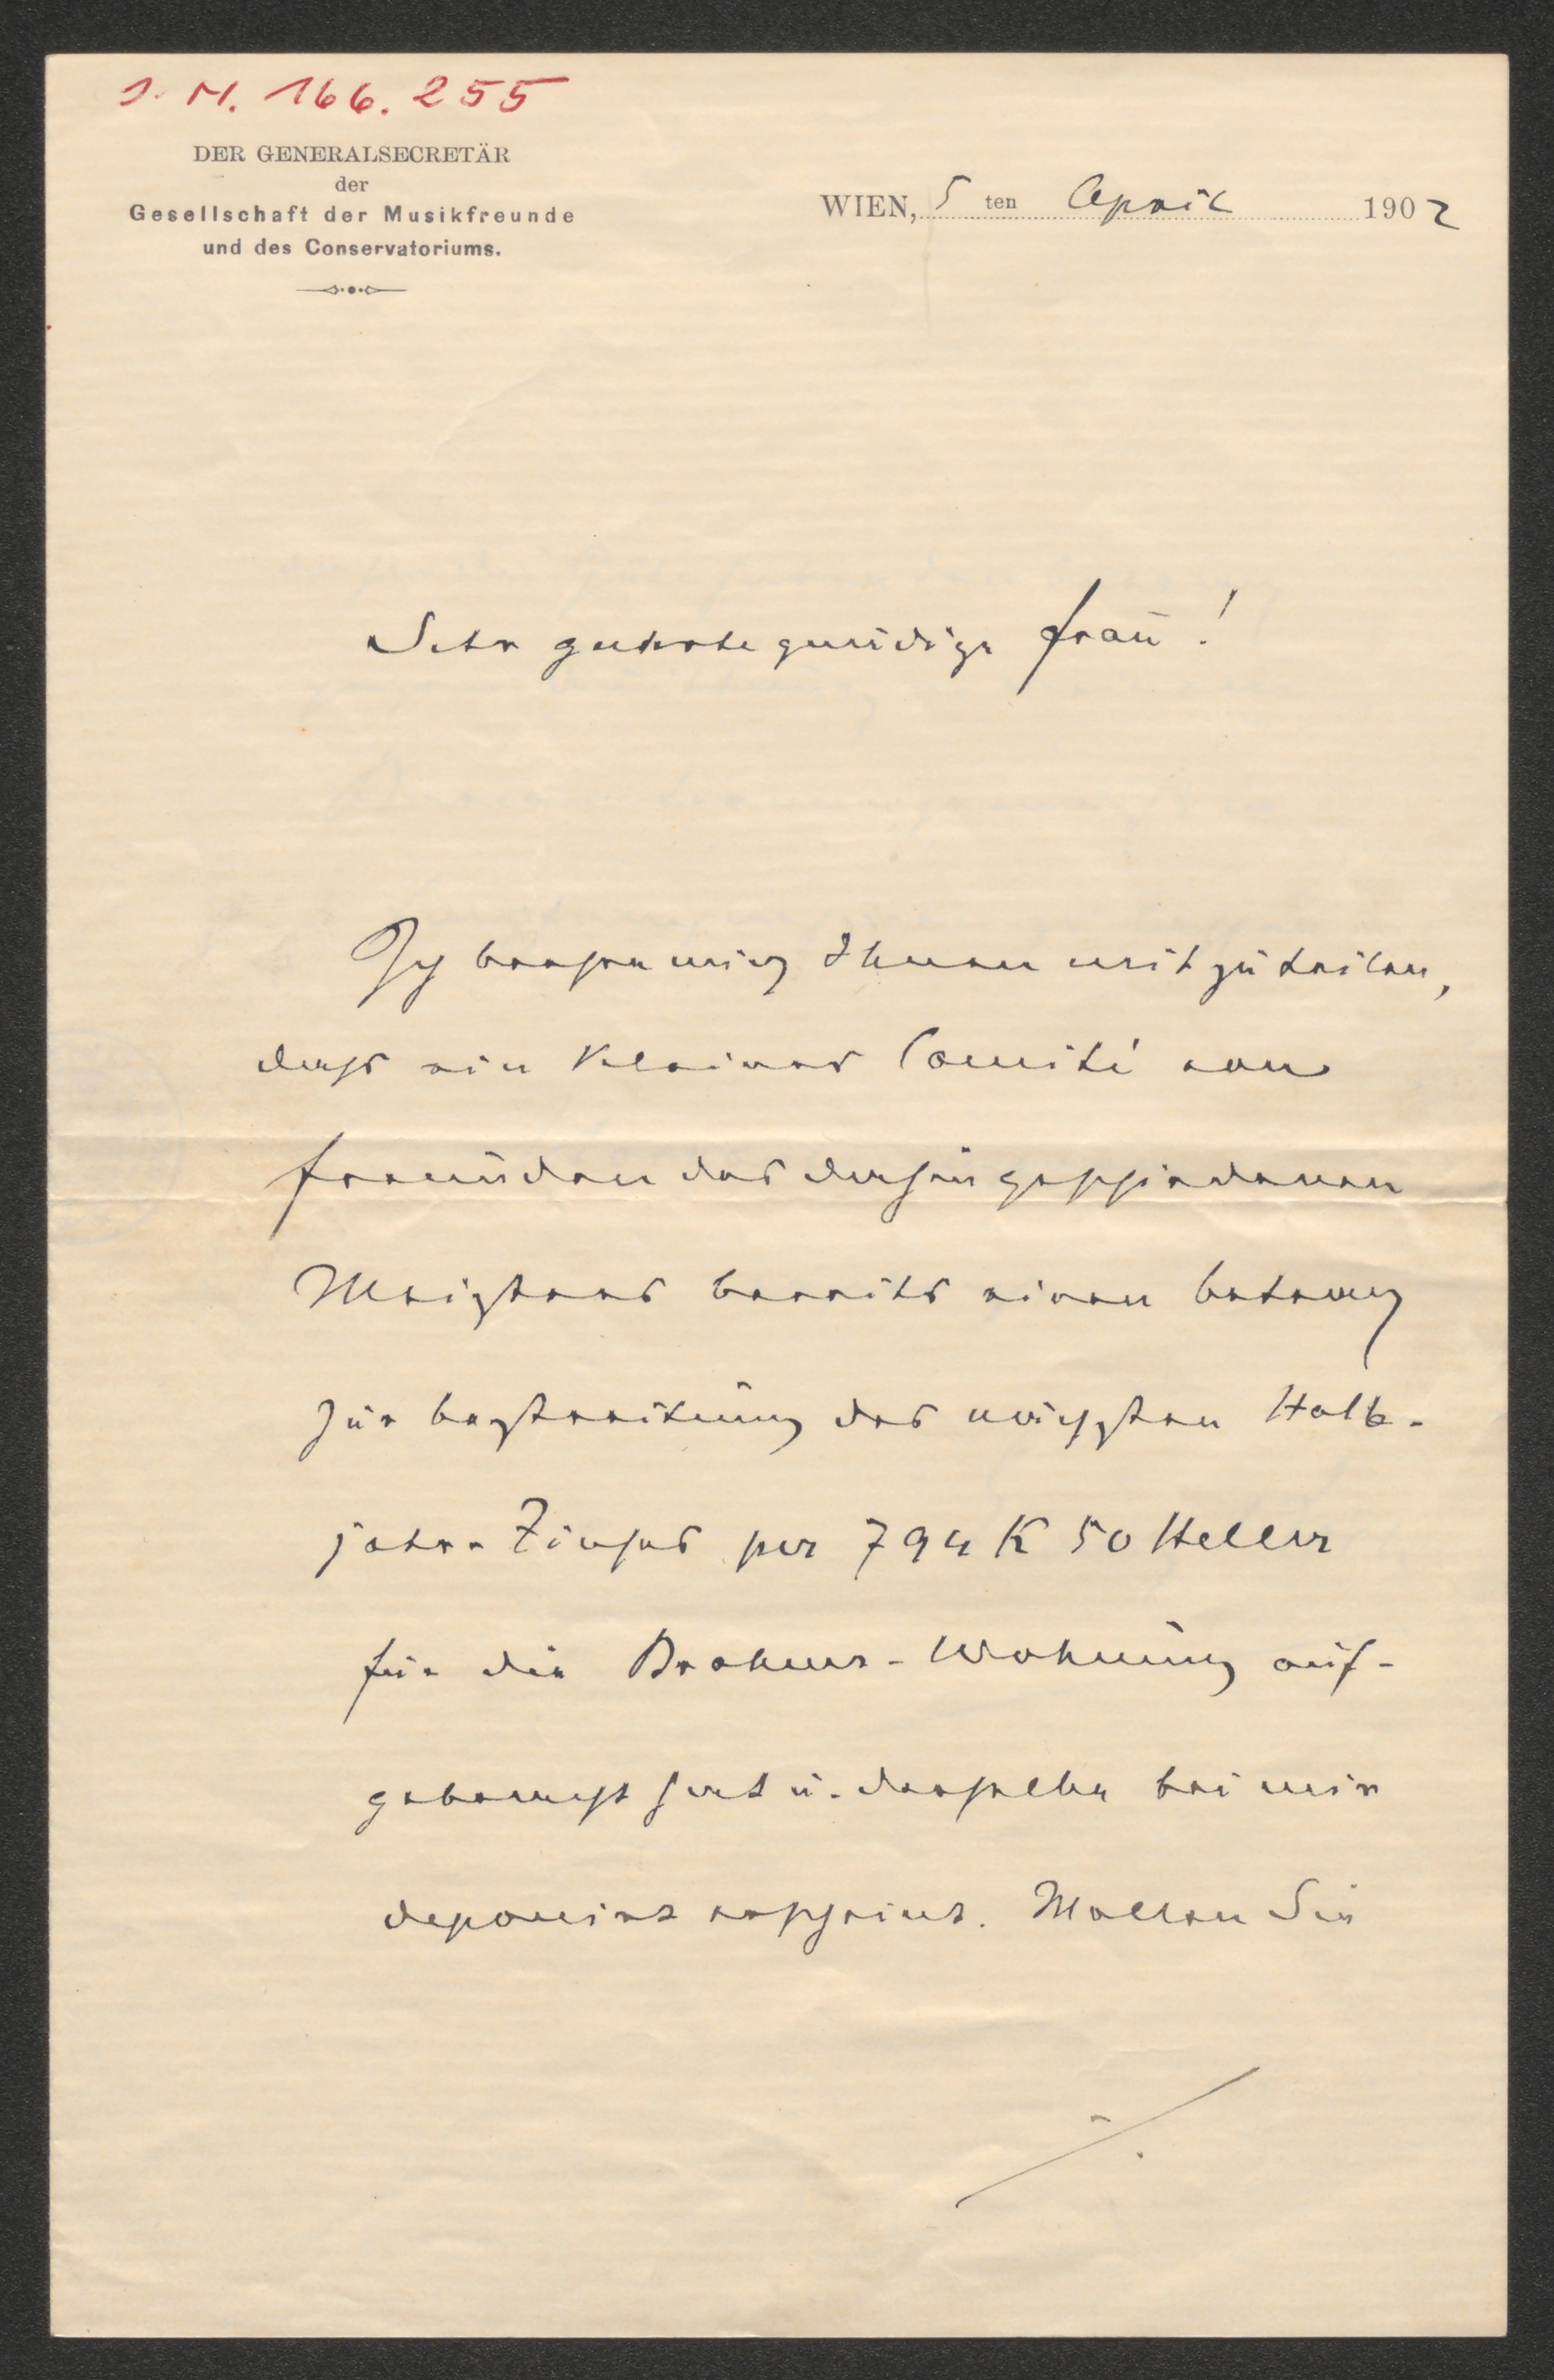 J. N. 166.255
DER GENERALSECRETÄR
der
Gesellschaft der Musikfreunde
und des Conservatoriums.
WIEN, 5 ten April 1902
Sehr geehrte gnädige Frau!
Ich beehre mich Ihnen mitzuteilen,
dass ein kleines Comité von
Freunden des dahingeschiedenen
Meisters bereits einen Betrag
zur Bestreitung des nächsten Halb-
jahr-Zinses per 794 K 50 Heller
für die Brahms-Wohnung auf-
gebracht hat u. derselbe bei mir
deponirt erscheint. Wollen Sie
./.